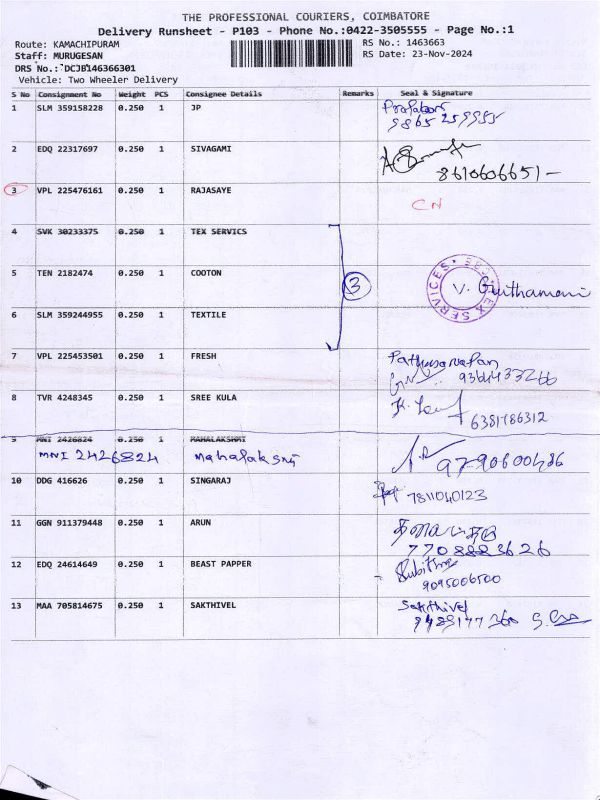 THE PROFESSIONAL COURIERS, COIMBATORE
Delivery Runsheet - P103 - Phone No.:0422-3505555 - Page No.:1
Route: KAMACHIPURAM RS No.: 1463663
Staff: MURUGESAN RS Date: 23-Nov-2024
DRS No.: DCJB146366301
Vehicle: Two Wheeler Delivery
S No Consignment No Weight PCS Consignee Details Remarks Seal & Signature
1 SLM 359158228 0.250 1 JP
2 EDQ 22317697 0.250 1 SIVAGAMI
8610606651-
3 VPL 225476161 0.250 1 RAJASAYE
CN
4 SVK 30233375 0.250 1 TEX SERVICS
5 TEN 2182474 0.250 1 COOTON
3 V. Guthamani
6 SLM 359244955 0.250 1 TEXTILE
7 VPL 225453501 0.250 1 FRESH
9364433266
8 TVR 4248345 0.250 1 SREE KULA
6381786312
9 MNI 2426824 0.250 1 MAHALAKSHMI
MNI 2426824 Mahalaksmi
10 DDG 416626 0.250 1 SINGARAJ
7811040123
11 GGN 911379448 0.250 1 ARUN
7708883626
12 EDQ 24614649 0.250 1 BEAST PAPPER
9095006500
13 MAA 705814675 0.250 1 SAKTHIVEL Sakthivel